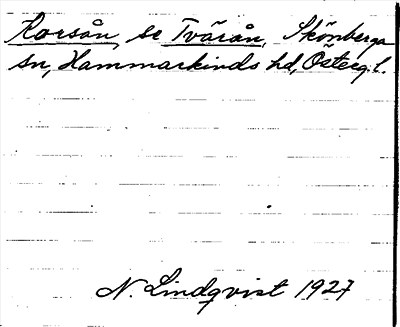 Korsån, se Tvärån, Skönberga
sn, Hammarkinds hd, Österg. l.
N. Lindqvist 1927